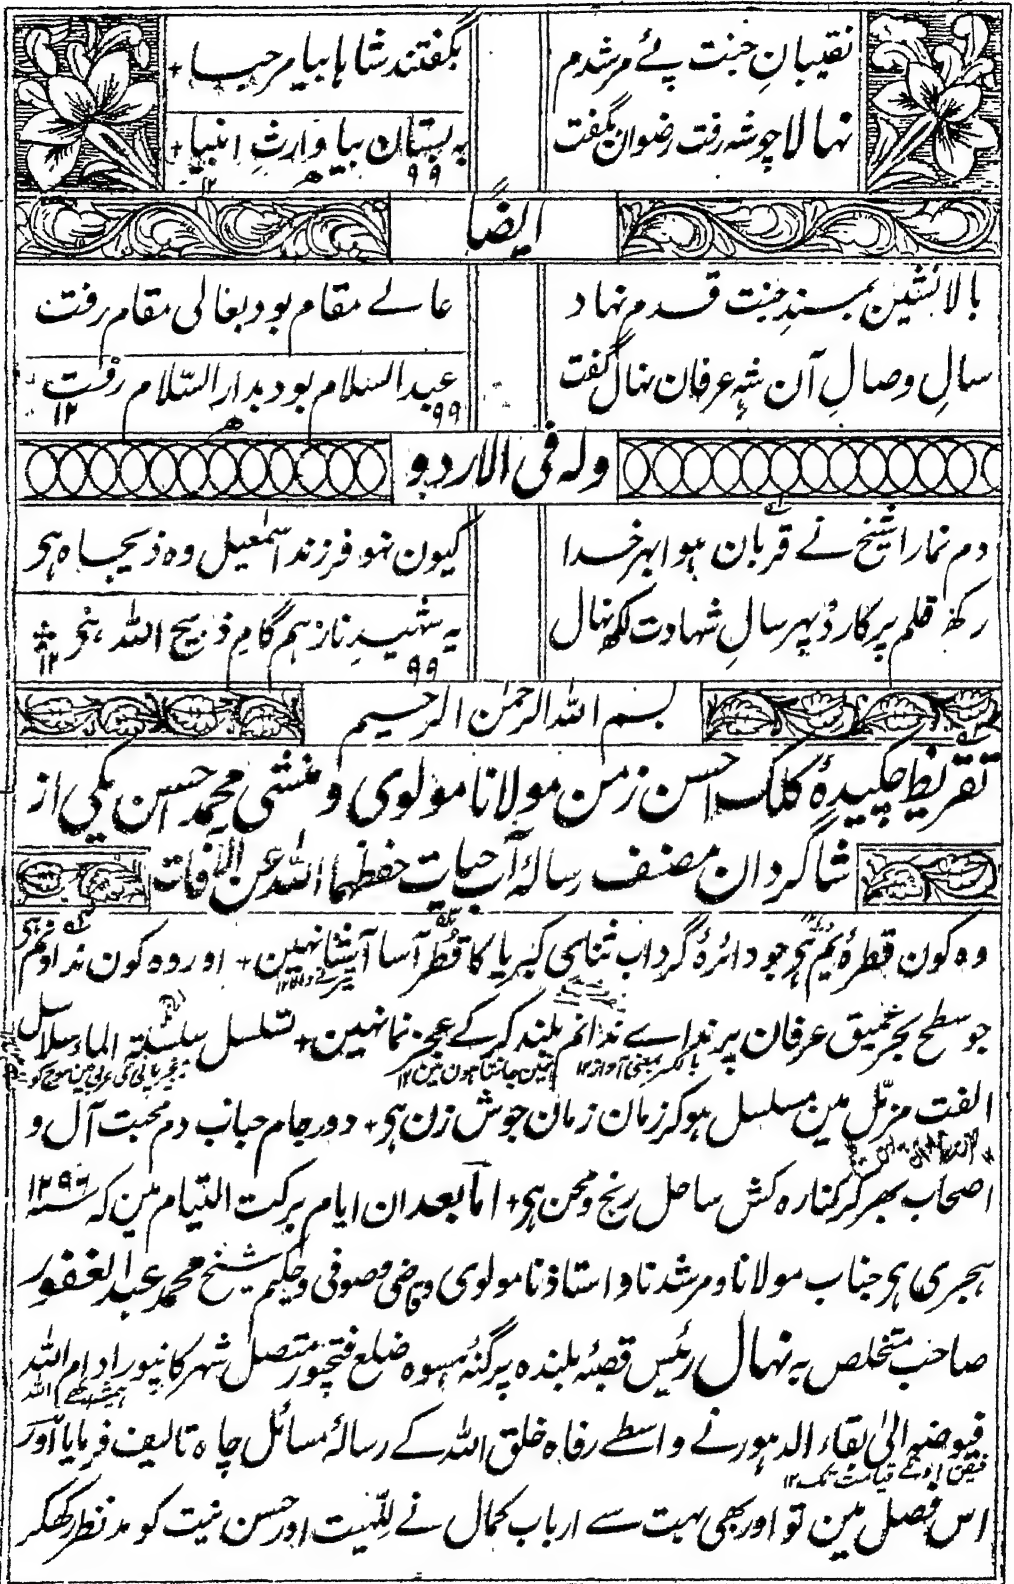 نقیبانِ جنت پئے مرشدم بگفتند شاہا بیا مرحبا +
نہالا چو شہ رفت رضوان بگفت بہ بستان بیا وارثِ انبیا +
۱۲۹۹ھ
ایضاً
بالا نشین بمسندِ جنت قدم نہاد عالے مقام بود بعالی مقام رفت
سالِ وصالِ آن شہِ عرفان نہال گفت عبد السلام بود بدار السّلام رفت
۱۲۹۹ھ
ولہ فی الاردو
دم نمارا شیخ نے قربان ہوا بہر خدا کیون نہو فرزند اسمٰعیل وہ ذیجاہ ہی
رکھ قلم پر کارد بہر سالِ شہادت لکھ نہال یہ شہیدِ ناز ہم گامِ ذبیح اللہ ہی
۱۲۹۹ھ
بسم اللہ الرحمٰن الرحیم
تقریظ چکیدۂ کلک احسن زمن مولانا مولوی و منشی محمد حسن یکی از
شاگردان مصنف رسالۂ آب حیات حفظہما اللہ عن الآفات
وہ کون قطرۂ یم ہی جو دائرۂ گرداب ثنائی کبریا کا قُطر آسا آشنا نہین + اور وہ کون نداوم ہی
جو سطح بحر عمیق عرفان پر نداے ندانم بلند کر کے عجز نما نہین + تسلسل سلسلۃ الماء سلاسل
بالکسر بمعنی آواز ۱۲ نہین جانتا ہون مین ۱۲
الفت مزمّل مین مسلسل ہو کر زمان زمان جوش زن ہی + دور جام حباب دم محبت آل و
اصحاب بھر کر کنارہ کش ساحل رنج و محن ہی + امّا بعد ان ایام برکت التیام مین کہ ۱۲۹۶
ہجری ہی جناب مولانا و مرشدنا و استاذنا مولوی و صوفی و حکیم شیخ محمد عبد الغفور
صاحب متخلص بہ نہال رئیس قصبۂ بلندہ پرگنۂ ہسوہ ضلع فتحپور متصل شہر کانپور ادام اللہ
ہمیشہ رکھے اللہ
فیوضہ الیٰ بقاء الدہور نے واسطے رفاہ خلق اللہ کے رسالۂ مسائل چاہ تالیف فرمایا اور
فیض اونکے قیامت تک ۱۲
اس فصل مین تو اور بھی بہت سے ارباب کمال نے للّٰہیت اور حسن نیت کو مد نظر رکھکر